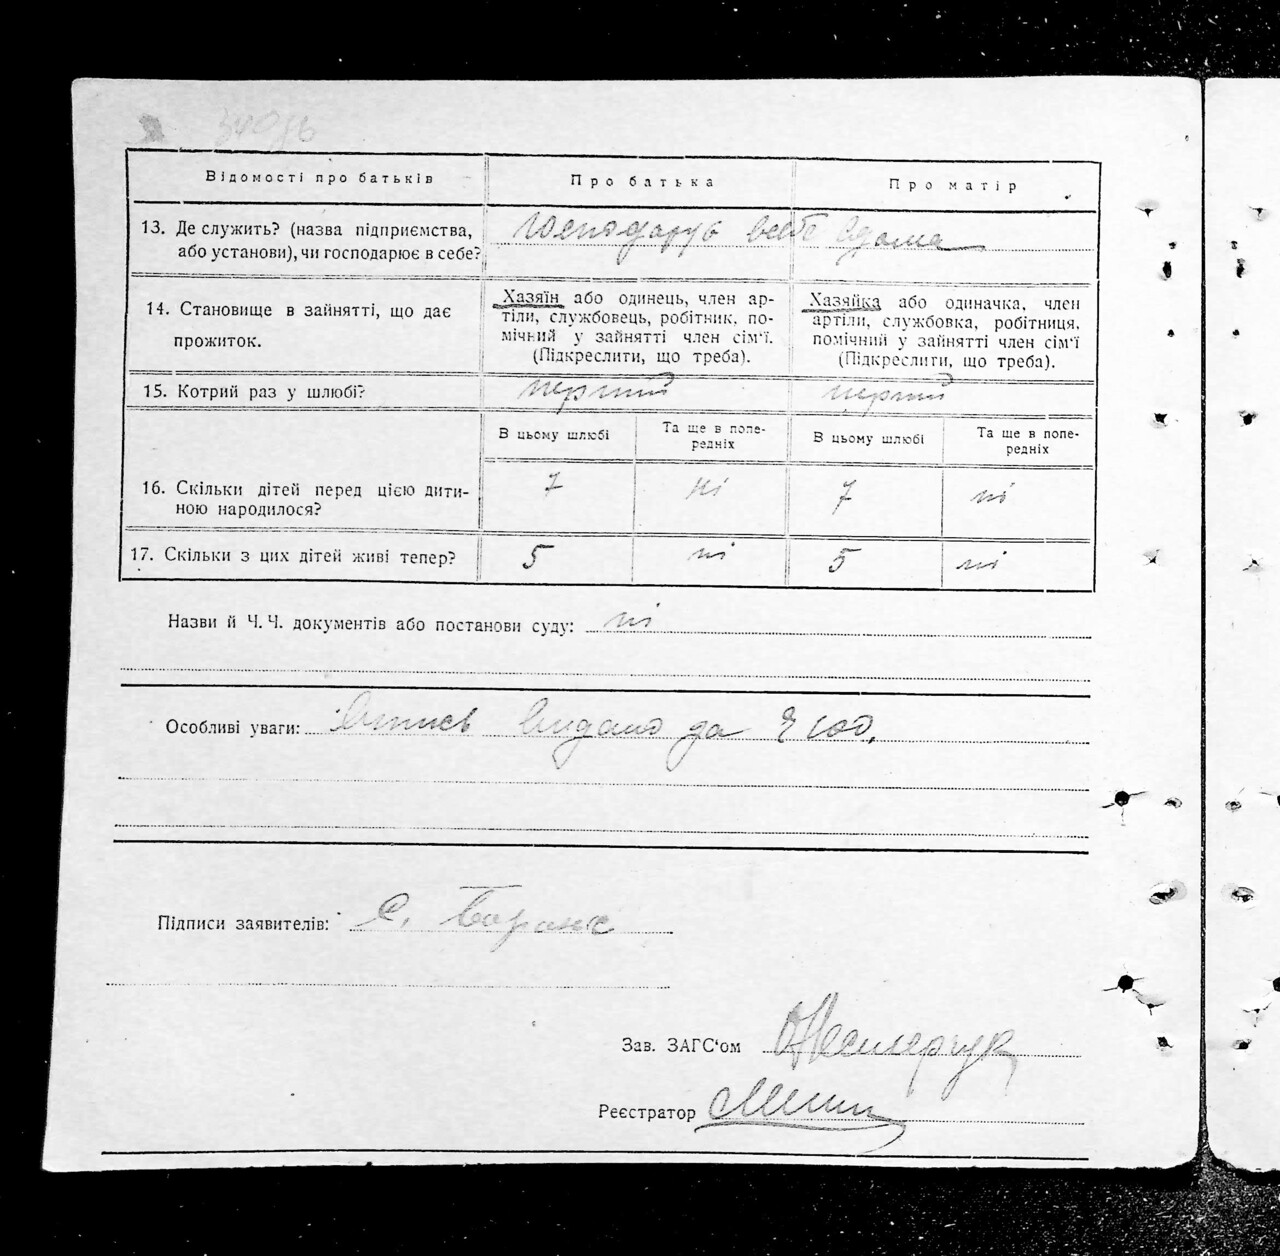 Відомості про батьків
Про батька
Про матір
13. Де служить? (назва підприємства,
або установи), чи господарює в себе?
господарує в себе вдома
14. Становище в зайнятті, що дає
прожиток.
Хазяїн або одинець, член ар-
тіли, службовець, робітник, по-
мічний у зайнятті член сім'ї.
(Підкреслити, що треба).
Хазяйка або одиначка, член
артіли, службовка, робітниця,
помічний у зайнятті член сім'ї
(Підкреслити, що треба).
15. Котрий раз у шлюбі?
перший
перший
В цьому шлюбі
Та ще в попе-
редніх
В цьому шлюбі
Та ще в попе-
редніх
16. Скільки дітей перед цією дити-
ною народилося?
7
ні
7
ні
17. Скільки з цих дітей живі тепер?
5
ні
5
ні
Назви й Ч.Ч. документів або постанови суду: ні
Особливі уваги: видано за
Підписи заявителів: С.
Зав. ЗАГС'ом
Реєстратор